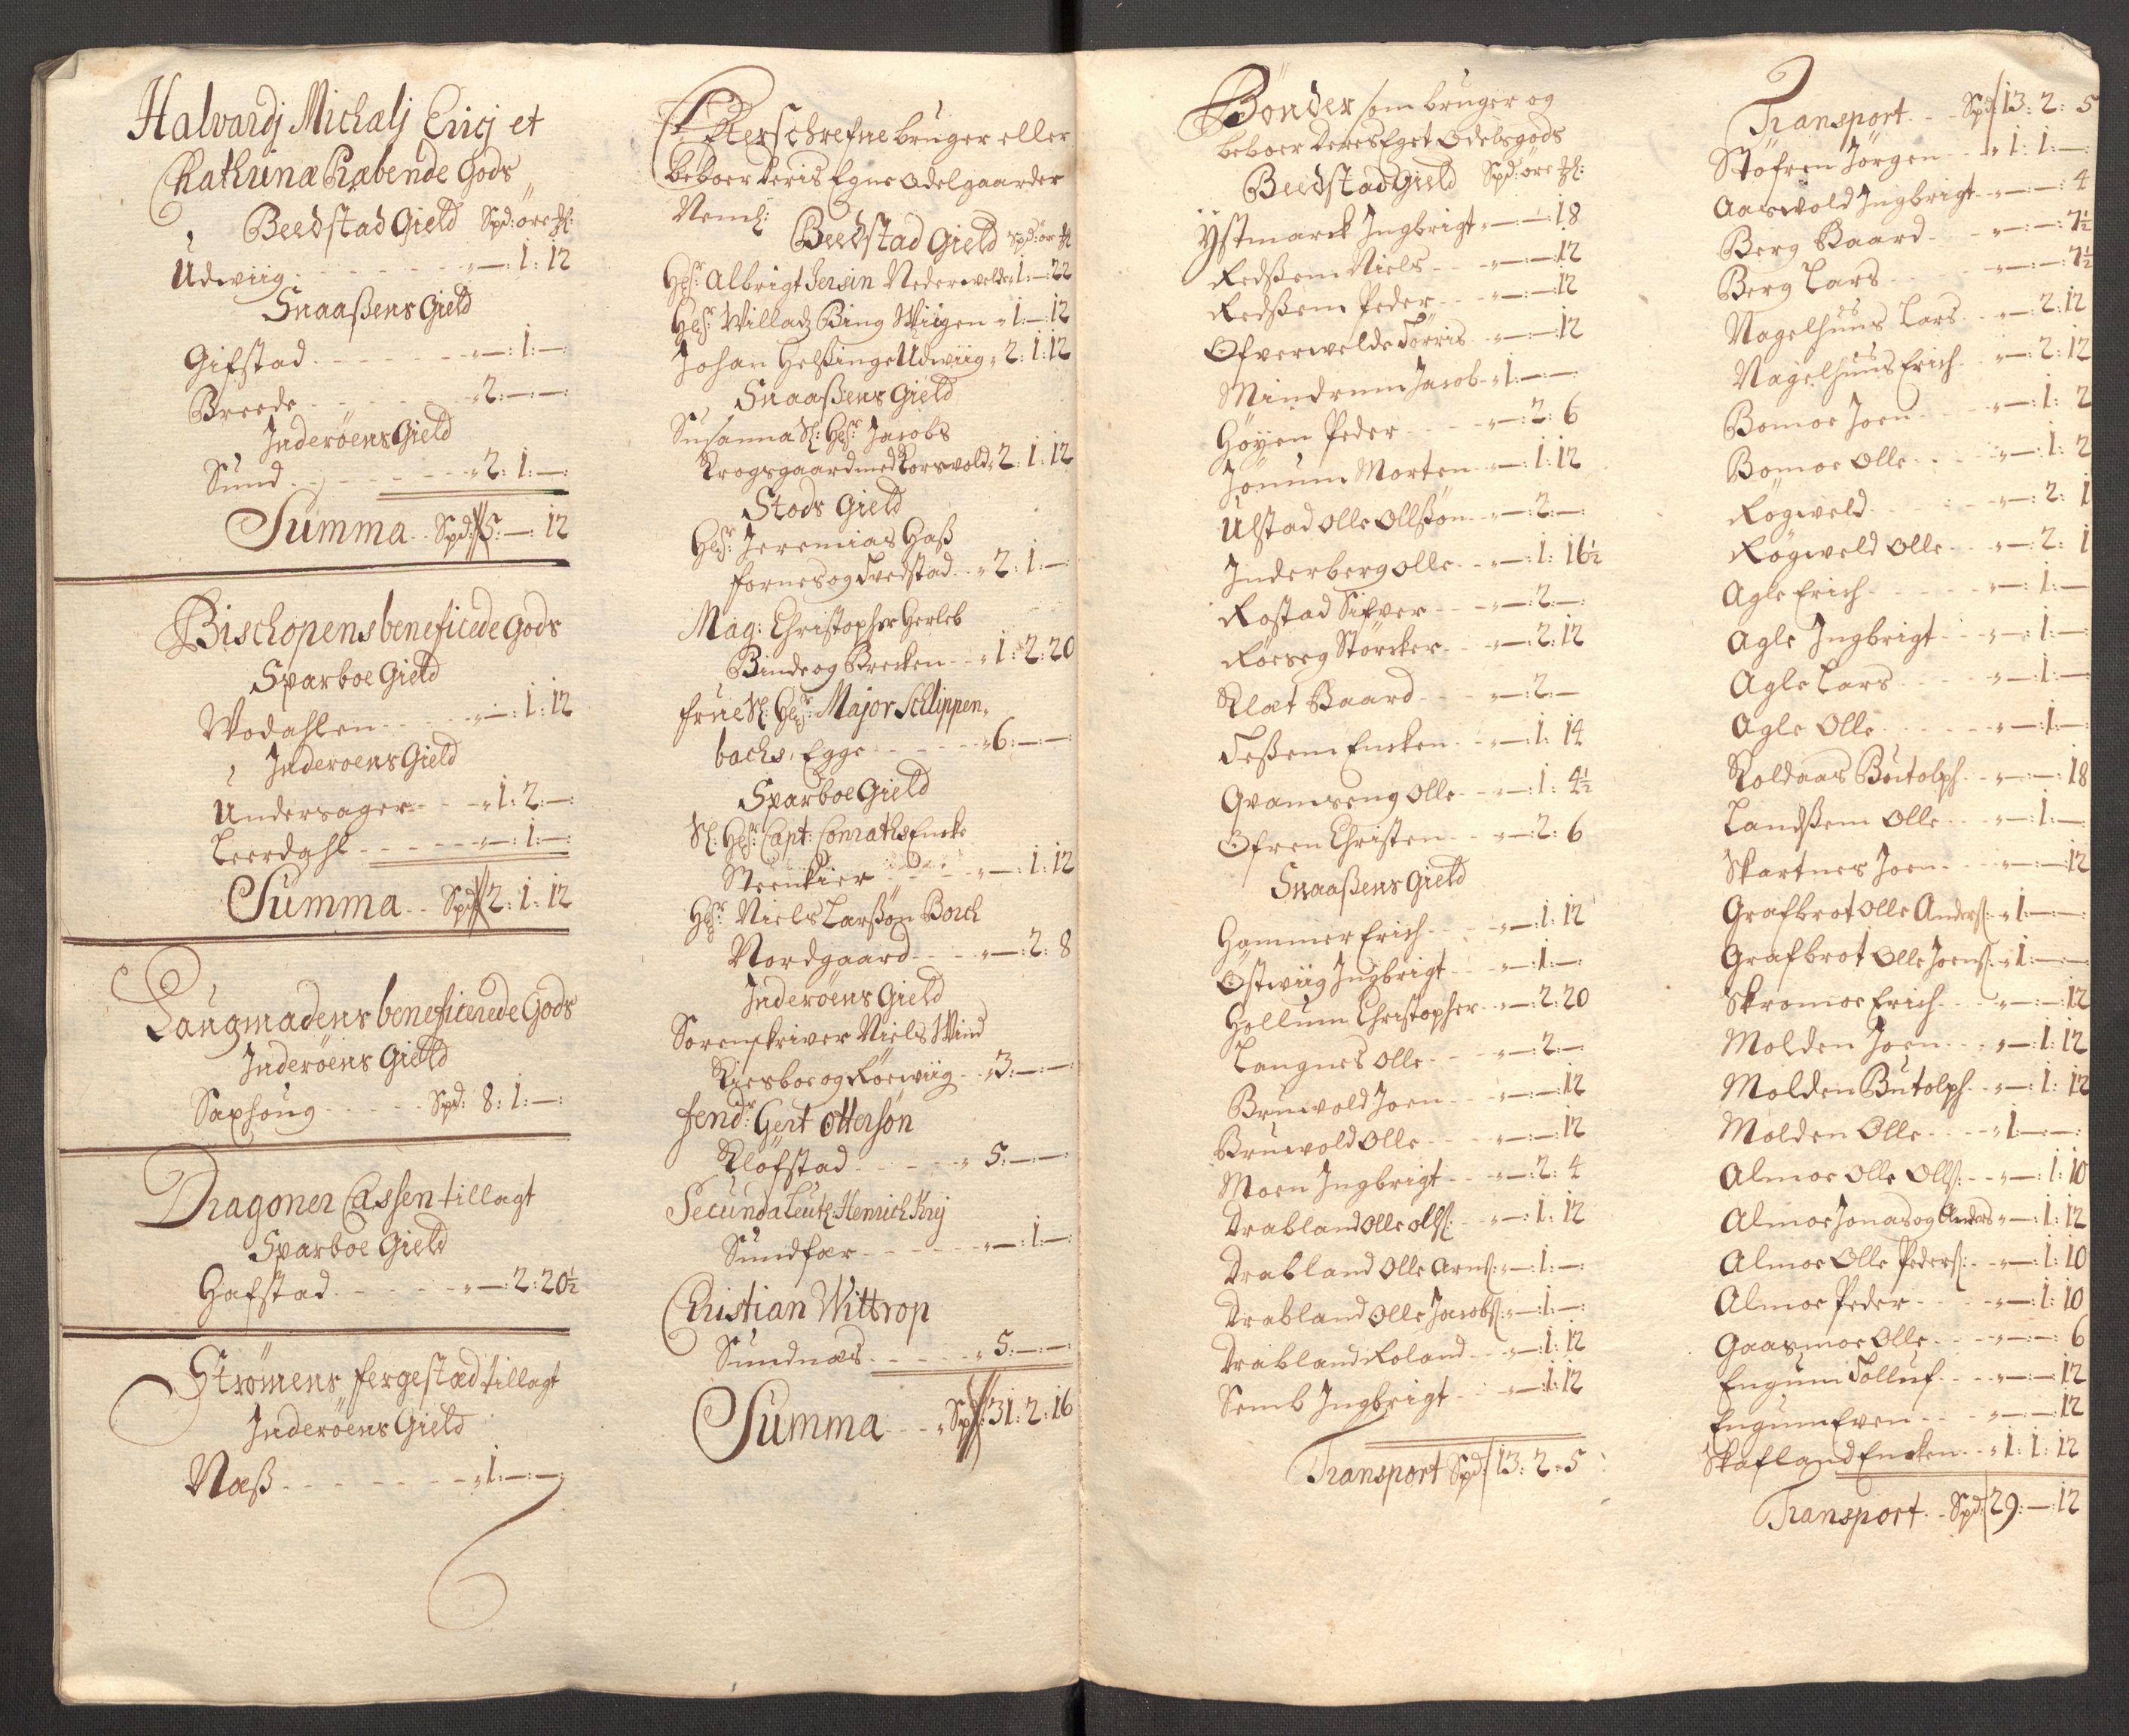 Halvardj Michalj Ericj et
Chatrinæ Præbende Gods
Beedstad Gield Spd: öre ₰l:
Udwiig - - - „ — : 1 : 12
Snaaßens Gield
Gifstad - - - „ — : 1 : —
Breede - - - „ 2 : — : —
Inderöens Gield
Sund - - - „ 2 : 1 : —
Summa - - Spd: 5 : — : 12
Bischopens beneficede Gods
Sparboe Gield
Wodahlen - - - „ — : 1 : 12
Inderoens Gield
Undersager - - - „ 1 : 2 : —
Leerdahl - - - „ — : 1 : —
Summa - - Spd: 2 : 1 : 12
Laugmadens beneficerede Gods
Inderöens Gield
Saxhoug - - - Spd: 8 : 1 : —
Dragoner Cassen tillagt
Sparboe Gield
Hafstad - - - „ — : 2 : 20½
Strömens fergestæd tillagt
Inderöens Gield
Næß - - - „ 1 : — : —
Efterschrefne bruger eller
beboer deris Egne Odelgaarder
Neml:
Beedstad Gield Spd: ör ₰l
Hr: Albrigt Jersin Nederwelde „ 1 : — : 22
Hr: Willadz Bing Wiigen „ 1 : — : 12
Johan Helßinge Udwiig „ 2 : 1 : 12
Snaaßens Gield
Susanna Sl: Hr: Jacobs
Krogsgaard med Korsvold „ 2 : 1 : 12
Stods Gield
Hr: Jeremias Haß
Fornes og Tvedstad - - „ 2 : 1 : —
Mag: Christopher Herleb
Binde og Brecken - - „ 1 : 2 : 20
Frue Sl: Hr: Major Schlippen-
bachs, Egge - - - „ 6 : — : —
Sparboe Gield
Sl: Hr: Capt: Conraths Encke
Steenkier - - - „ — : 1 : 12
Hr: Niels Larßøn Borch
Nordgaard - - - „ — : 2 : 8
Inderöens Gield
Sorenskriver Niels Wind
Kiesboe og Röewiig - - „ 3 : — : —
Fendr: Gert Otterson
Klöfstad - - - „ 5 : — : —
Secunda Leutl Henrich Krij
Sundfær - - - „ — : 1 : —
Christian Wittrop
Sundnæs - - - „ 5 : — : —
Summa - - - „ Spd: 31 : 2 : 16
Bönder som bruger og
beboer deres Eget Odelsgods
Beedstad Gield Spd: öre ₰l:
Ystmarck Ingbrigt „ — : — : 18
Redßem Niels - - - „ — : — : 12
Redßem Peder - - - „ — : — : 12
Ofverwelde Torris - - „ — : — : 12
Mindrum Jacob - „ 1 : — : —
Höyen Peder - - - „ — : 2 : 6
Jönum Morten - - „ — : 1 : 12
Ulstad Olle Ollssøn - - „ — : 2 : —
Inderberg Olle - - - „ — : 1 : 16½
Rostad Sifver - - - „ — : 2 : —
Röeseg Störcker - - „ — : 2 : 12
Klæt Baard - - - „ — : 2 : —
Teßem Encken - - „ — : 1 : 14
Qvamseng Olle - - „ — : 1 : 4½
Ofren Christen - - „ — : 2 : 6
Snaaßens Gield
Hammer Erich - - - „ — : 1 : 12
Östwiig Ingbrigt - - - „ — : 1 : —
Hollum Christopher - - „ — : 2 : 20
Langnes Olle - - - „ — : 2 : —
Bruwold Joen - - - „ — : — : 12
Bruwold Olle - - - „ — : — : 12
Moen Ingbrigt - - - „ — : 2 : 4
Drabland Olle Olls: - „ — : 1 : 12
Drabland Olle Arns: „ — : 1 : —
Drabland Olle Jacobs: „ — : 1 : —
Drabland Roland - - „ — : 1 : 12
Semb Ingbrigt - - „ — : 1 : 12
Transport Spd: 13 : 2 : 5
Transport - - Spd: 13 : 2 : 5
Stöfren Jörgen - - - „ 1 : 1 : —
Aarswold Ingbrigt - - „ — : — : 4
Berg Baard - - - „ — : — : 7½
Berg Lars - - - „ — : — : 7½
Nagelhuus Lars - - „ — : 2 : 12
Nagelhuus Erich - - „ — : 2 : 12
Bomoe Joen - - - „ — : 1 : 2
Bomoe Olle - - - „ — : 1 : 2
Rögweld - - - „ — : 2 : 1
Rögweld Olle - - „ — : 2 : 1
Agle Erich - - - „ — : 1 : —
Agle Ingbrigt - - - „ — : 1 : —
Agle Lars - - - „ — : 1 : —
Agle Olle - - - „ — : 1 : —
Koldaas Butolph - - „ — : — : 18
Landßem Olle - - - „ — : 1 : —
Skartnes Joen - - - „ — : — : 12
Grafbrot Olle Anders: „ 1 : — : —
Grafbrot Olle Joens: „ 1 : — : —
Skromoe Erich - - - „ — : — : 12
Molden Joen - - - „ — : 1 : 12
Molden Butolph - - „ — : 1 : 12
Molden Olle - - - „ 1 : — : —
Almoe Olle Olls: - - „ — : 1 : 10
Almoe Jonas og Anders „ — : 1 : 12
Almoe Olle Peders: - - „ — : 1 : 10
Almoe Peder - - - „ — : 1 : 10
Gaasmoe Olle - - - „ — : — : 6
Engum Tolluf - - - „ — : — : 12
Engum Even - - - „ — : — : 12
Skafland Encken - - „ 1 : 1 : 12
Transport - - Spd: 29 : — : 12